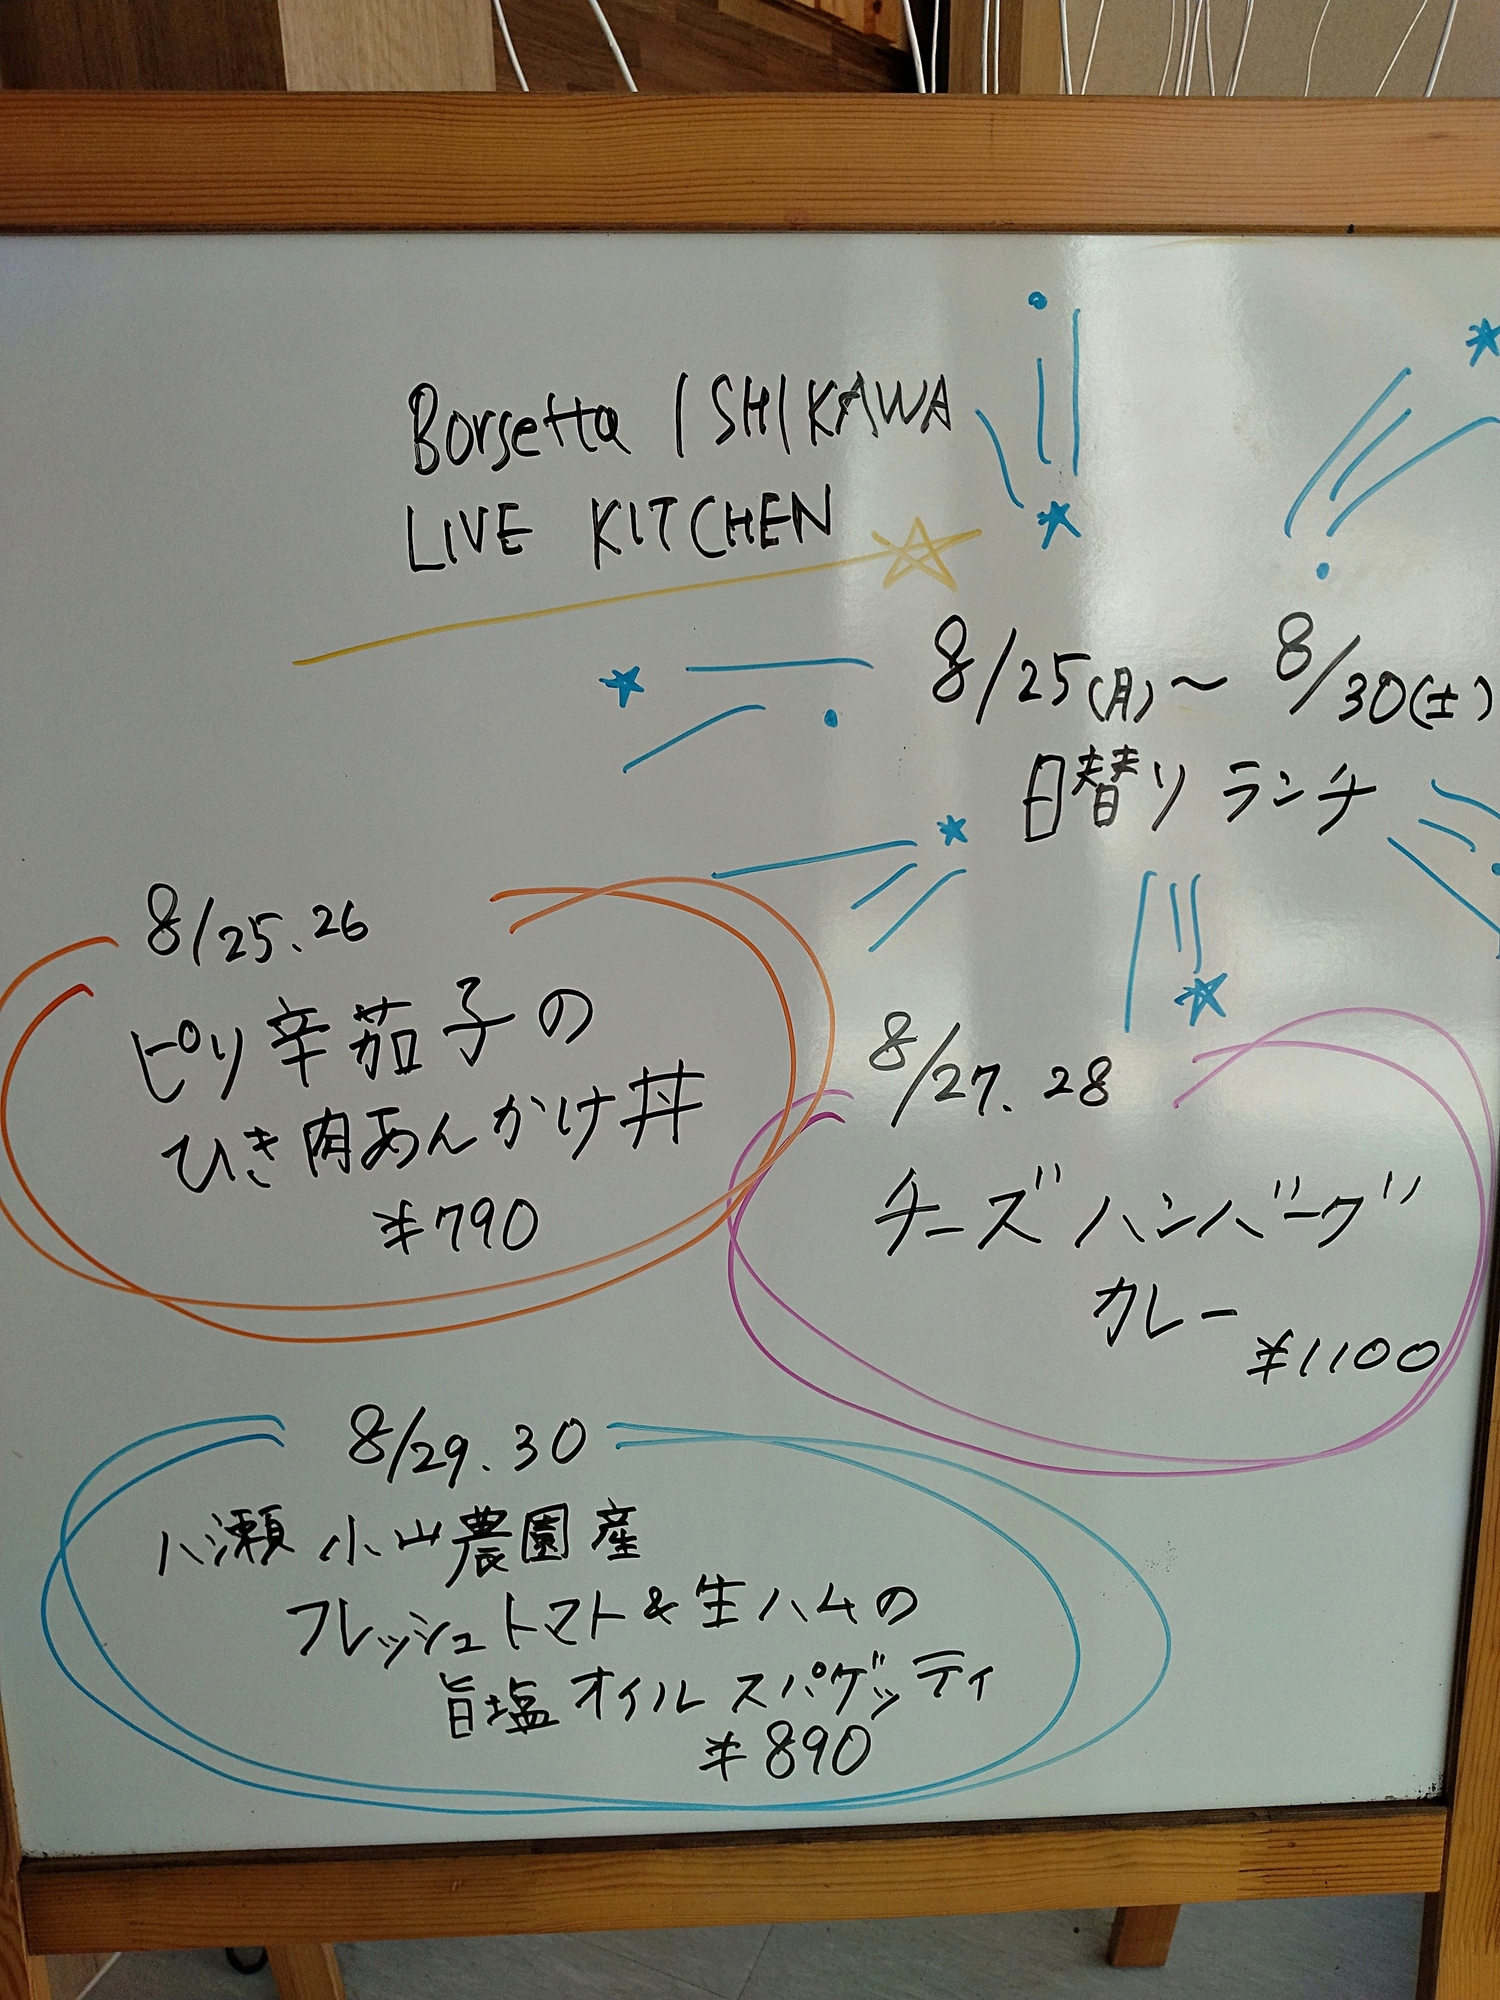 Borsetta ISHIKAWA
LIVE KITCHEN
8/25(月)〜8/30(土)
日替りランチ
8/25.26
ピリ辛茄子の
ひき肉あんかけ丼
¥790
8/27.28
チーズハンバーグ
カレー
¥1100
8/29.30
八瀬 小山農園産
フレッシュトマト&生ハムの
旨塩オイルスパゲッティ
¥890